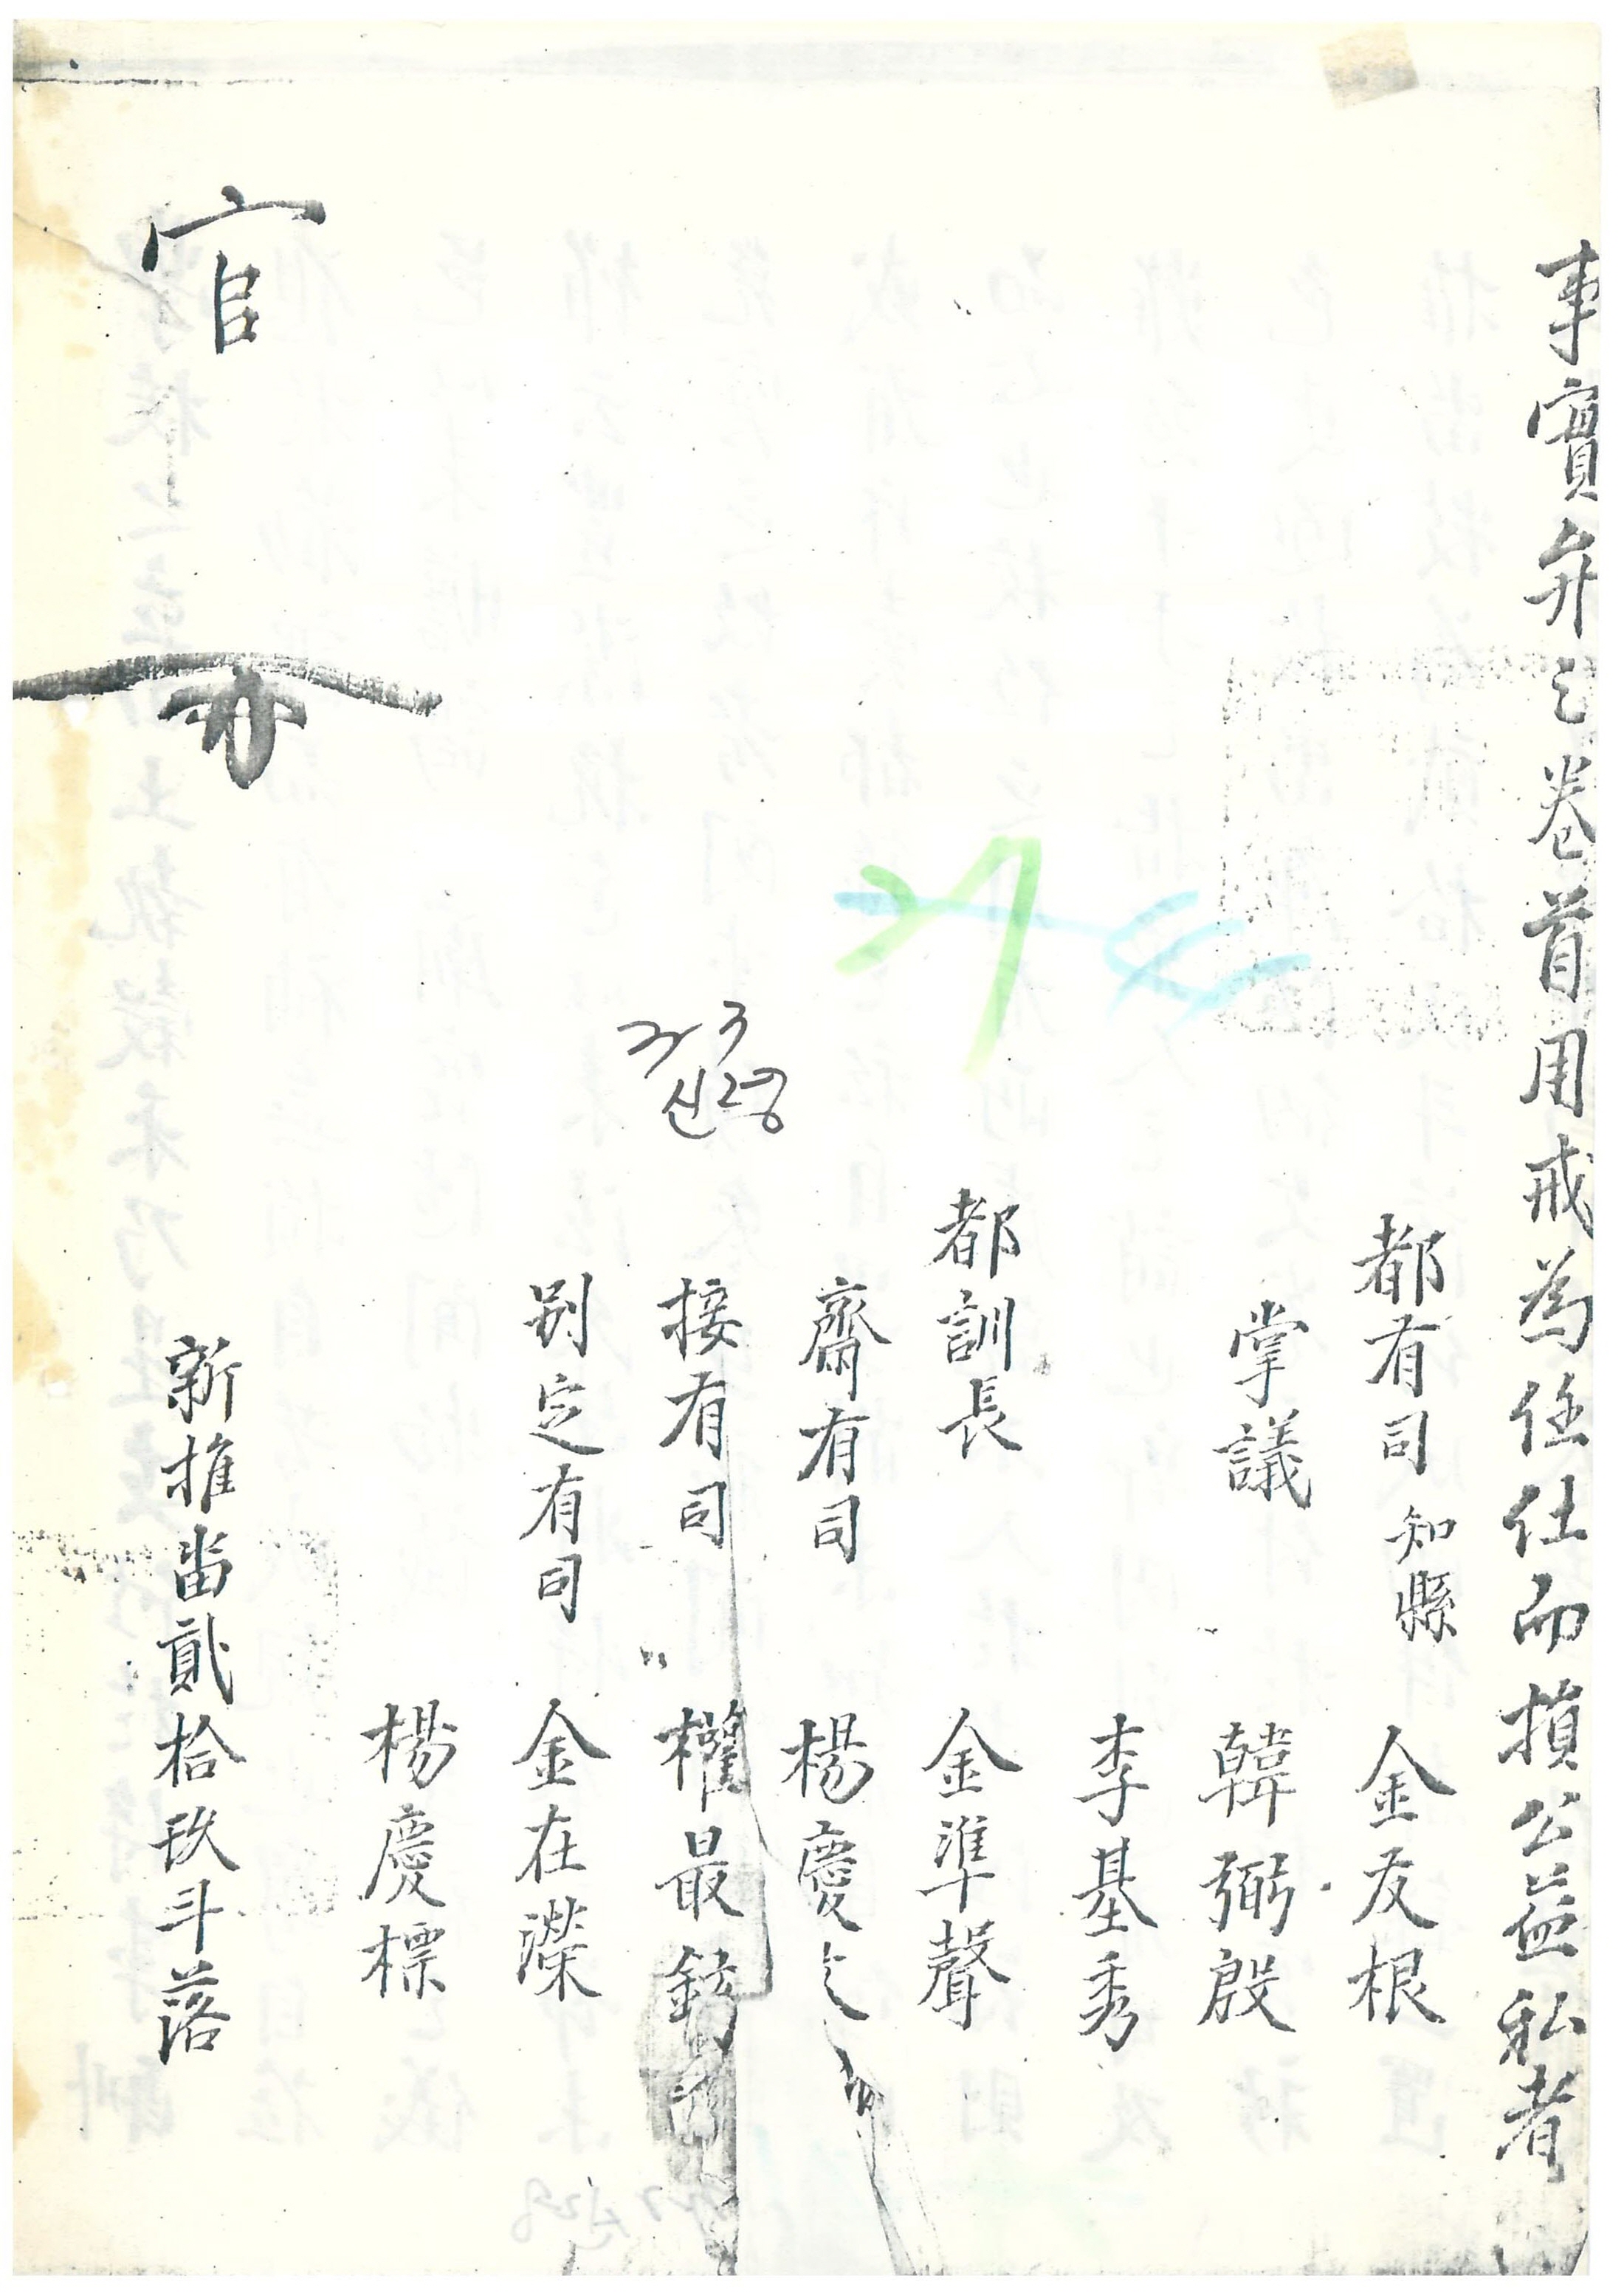 事實弁之卷首用戒為任仕而損公益私者
都有司 知縣 金友根
掌議 韓弼殷
李基秀
都訓長 金準聲
齋有司 楊慶之
接有司 權最
別定有司 金在濚
楊慶標
新推畓貳拾玖斗落
官